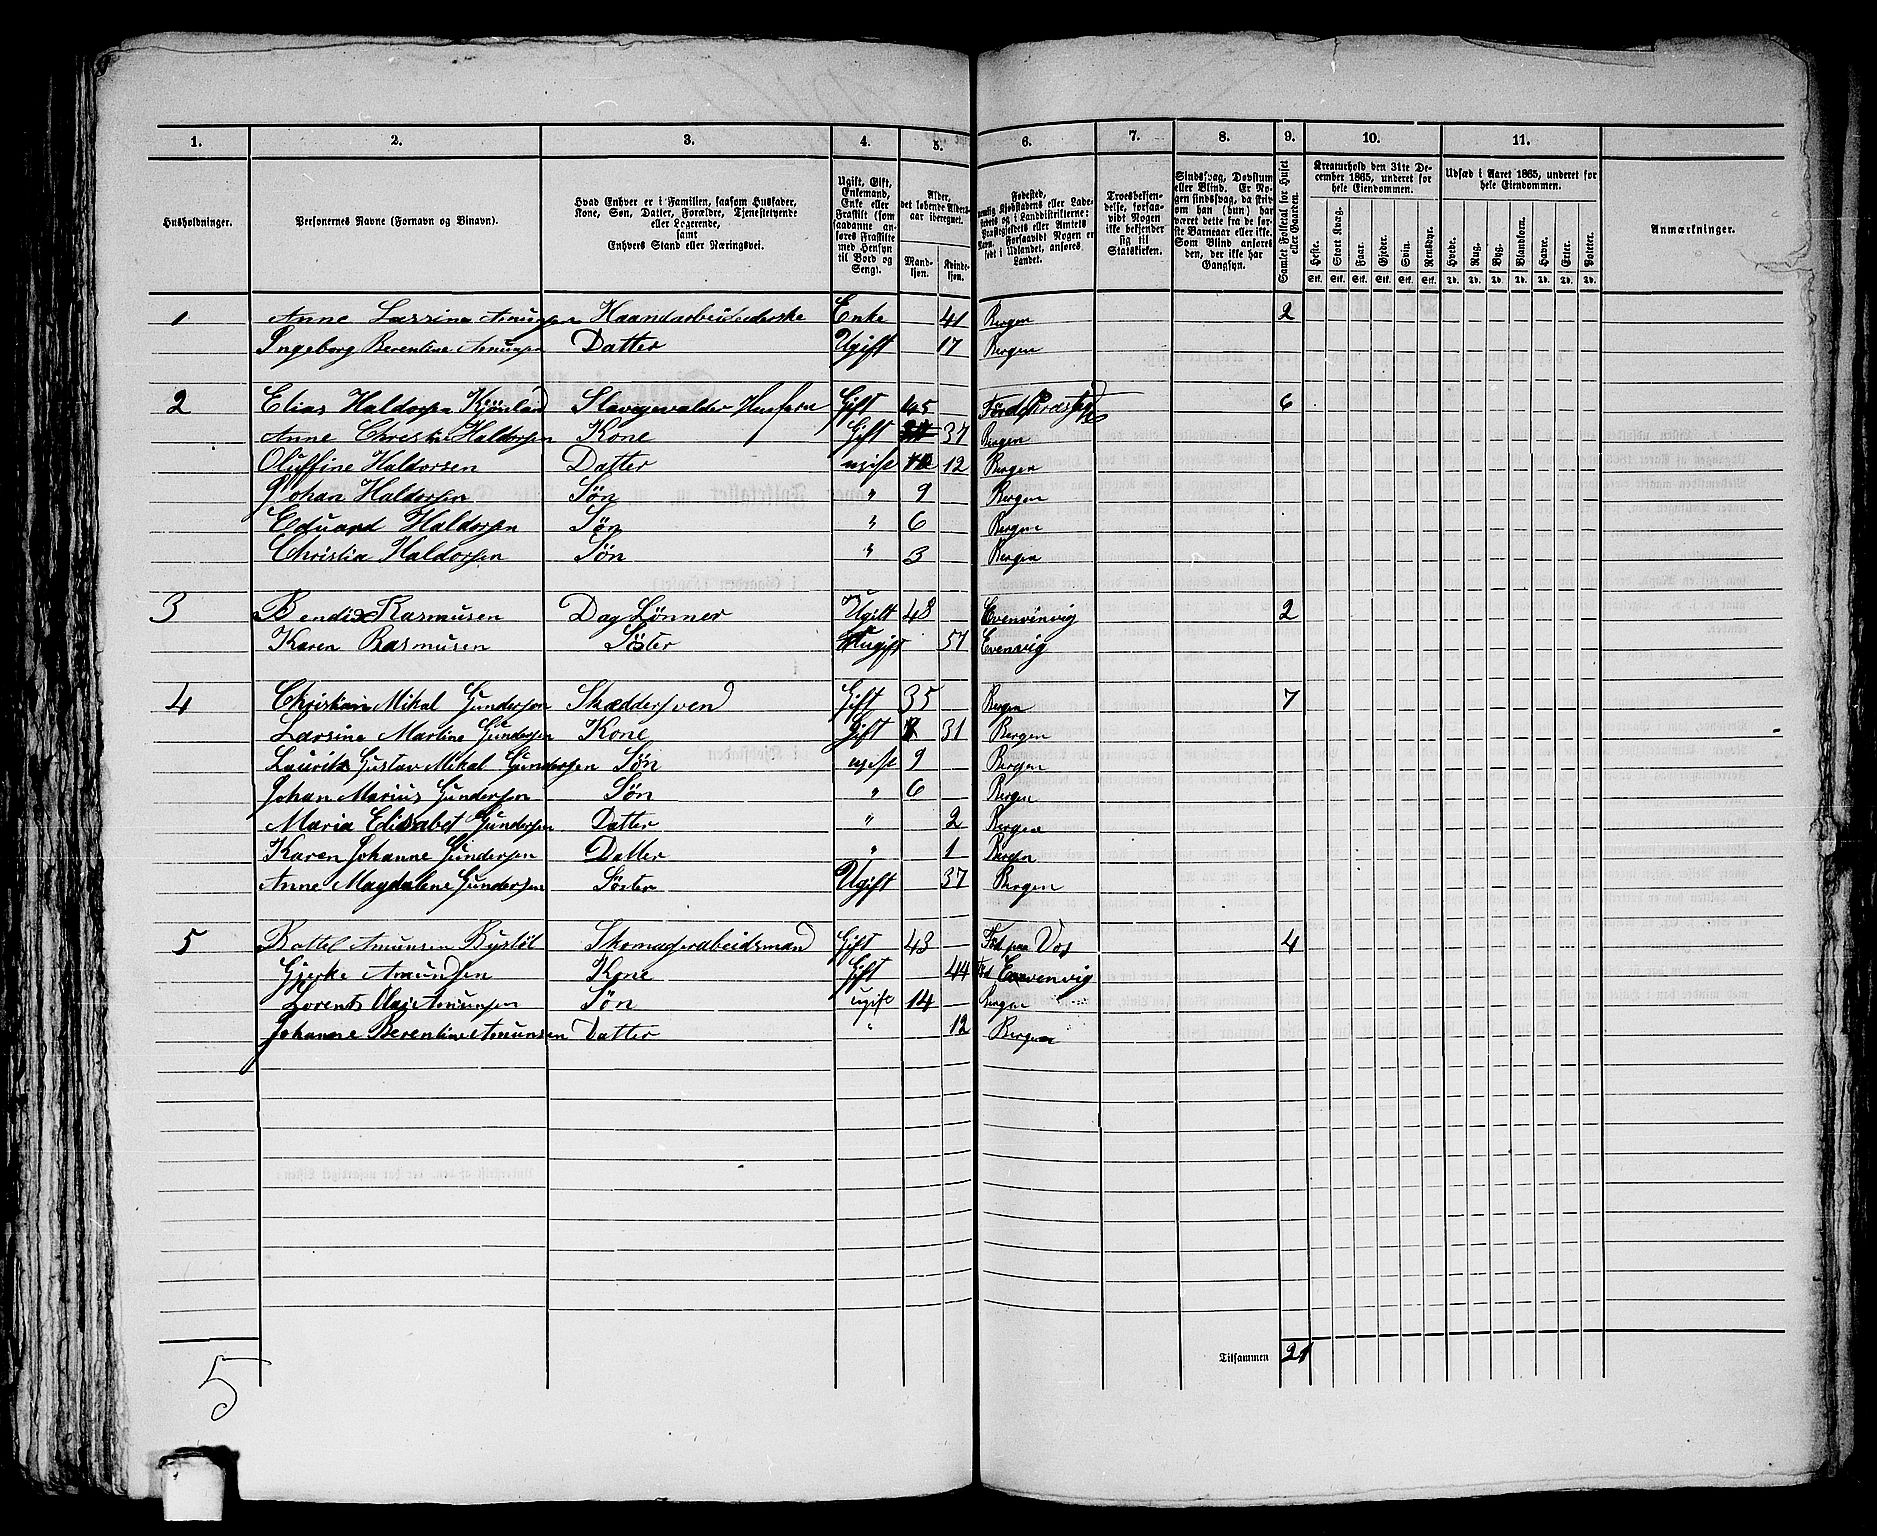 1. 2. 3. 4. 5. 6. 7. 8. 9. 10. 11.
Husholdninger.
Personernes Navne (Fornavn og Binavn).
Hvad Enhver er i Familien, saasom Husfader,
Kone, Søn, Datter, Forældre, Tjenestetyende
eller Logerende,
samt
Enhvers Stand eller Næringsvei.
Ugift, Gift,
Enkemand,
Enke eller
Fraskilt (som
saadanne an-
føres Fraskilte
med Hensyn
til Bord og
Seng).
Alder,
det løbende Alders-
aar iberegnet.
Mand-
kjøn.
Kvinde-
kjøn.
Fødested,
Troesbekjen-
delse, forsaa-
vidt Nogen
ikke bekjender
sig til
Statskirken.
Sindssvag, Døvstum
eller Blind. Er No-
gen sindssvag, da skriv
om han (hun) har
været dette fra de før-
ste Barneaar eller ikke.
Som Blind anføres
den, der ikke har
Gangsyn.
Samlet Folketal for Huset
eller Gaarden.
Kreaturhold den 31te De-
cember 1865, underet for
hele Eiendommen.
Heste. Stort Kvæg. Faar. Gjeder. Svin. Rensdyr.
Stk. Stk. Stk. Stk. Stk. Stk.
Udsæd i Aaret 1865, underet for
hele Eiendommen.
Hvede. Rug. Byg. Blandkorn. Havre. Erter. Poteter.
Td. Td. Td. Td. Td. Td. Td.
Anmærkninger.
1 Anne Larsine Amunsen Haandarbeidederske Enke 41 Bergen 2
Ingeborg Berentine Amunsen Datter Ugift 17 Bergen
2 Elias Haldorsen Kjönlad Husfar Gift 45 6
Anne Christi Haldorsen Kone Gift 37 Bergen
Oluffine Haldorsen Datter ugift 12 Bergen
Johan Haldorsen Søn " 9 Bergen
Eduard Haldorsen Søn " 6 Bergen
Christia Haldorsen Søn " 3 Bergen
3 Bendix Rasmusen Dag Lønner Ugift 48 Evenvinvig 2
Karen Rasmusen Söster ugift 57 Evenvig
4 Christian Mikal Gundersen Skæddersvend Gift 35 Bergen 7
Larsine Martine Gundersen Kone Gift 31 Bergen
Lauritz Gustav Mikal Gundersen Søn ugift 9 Bergen
Johan Marius Gundersen Søn " 6 Bergen
Maria Elisabet Gundersen Datter " 2 Bergen
Karen Johanne Gundersen Datter " 1 Bergen
Anne Magdalene Gundersen Söster Ugift 37 Bergen
5 Amunsen Bystöl Skomagerarbeidsmand Gift 43 Föd paa Vos 4
Gjerke Amundsen Kone Gift 44 Föd Evenvig
Lorents Amunsen Søn ugift 14 Bergen
Johanne Berentine Amunsen Datter " 12 Bergen
Tilsammen 21
5